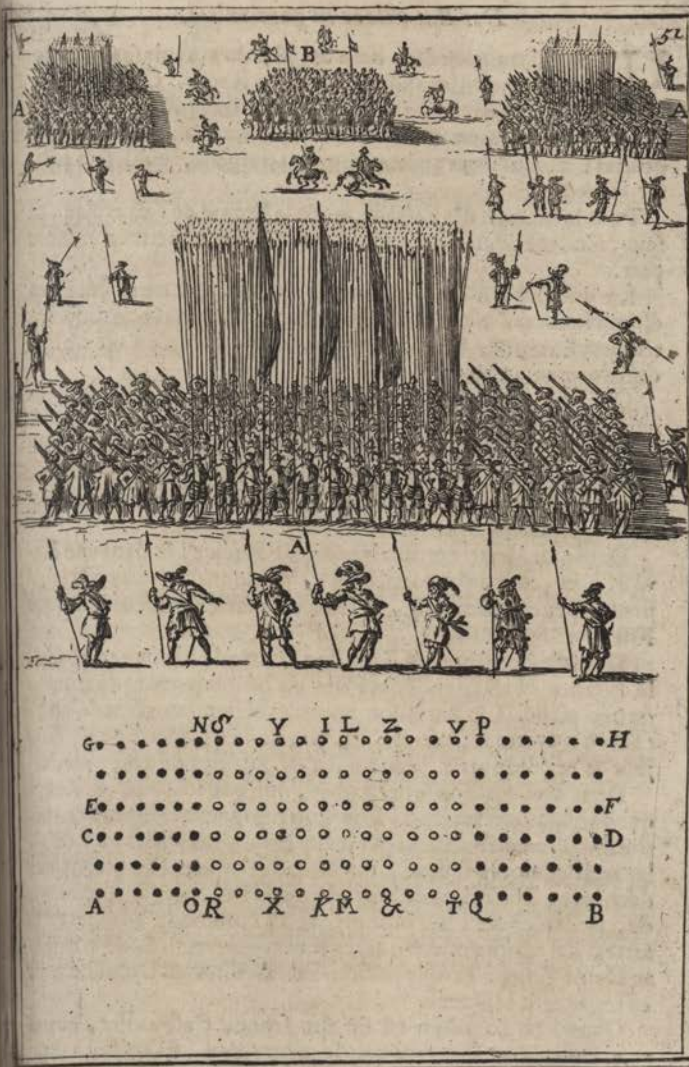 52
B
A
A
A
N S Y I L Z V P
G H
E F
C D
A O R X K M & T Q B